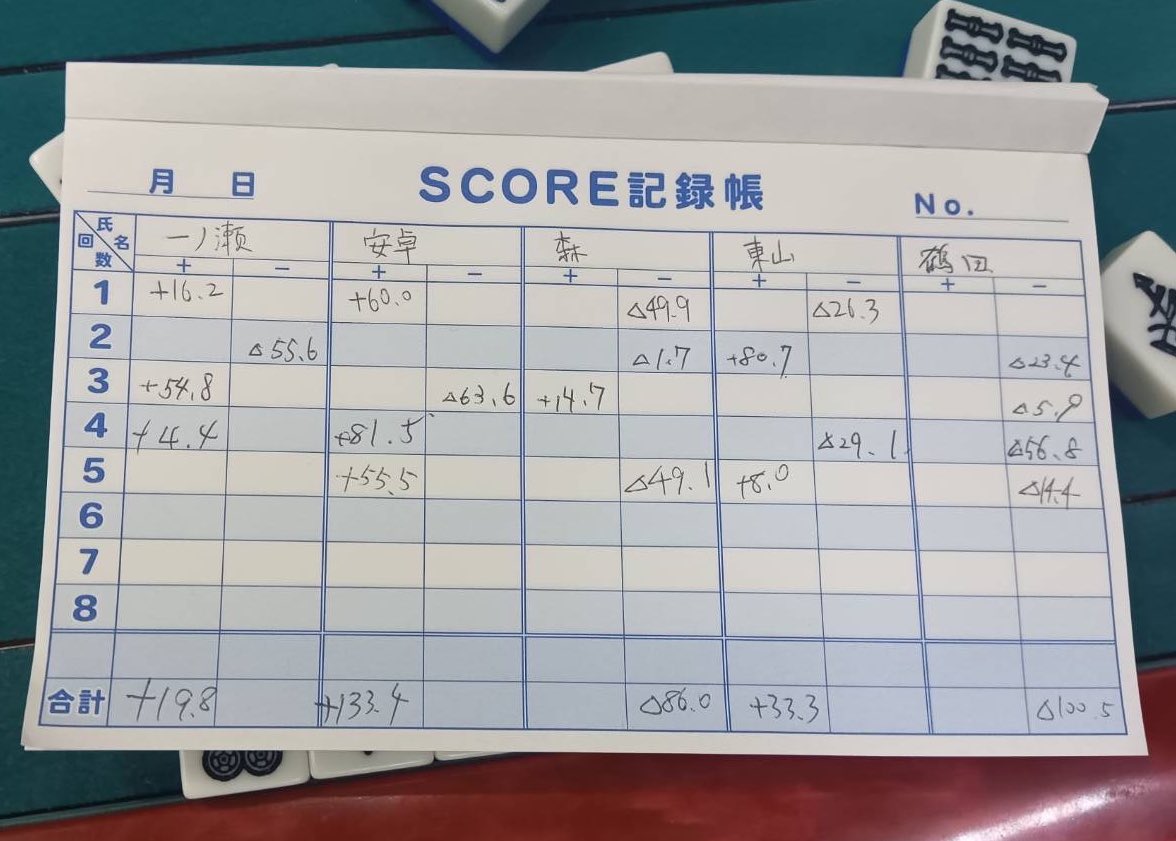 月 日 SCORE記録帳 No.
氏名 回数 一ノ瀬 安卓 森 東山 鶴田
+ − + − + − + − + −
1 +16.2 +60.0 △49.9 △26.3
2 △55.6 △1.7 +80.7 △23.4
3 +54.8 △63.6 +14.7 △5.9
4 +4.4 +81.5 △29.1 △56.8
5 +55.5 △49.1 +8.0 △14.4
6
7
8
合計 +19.8 +133.4 △86.0 +33.3 △100.5